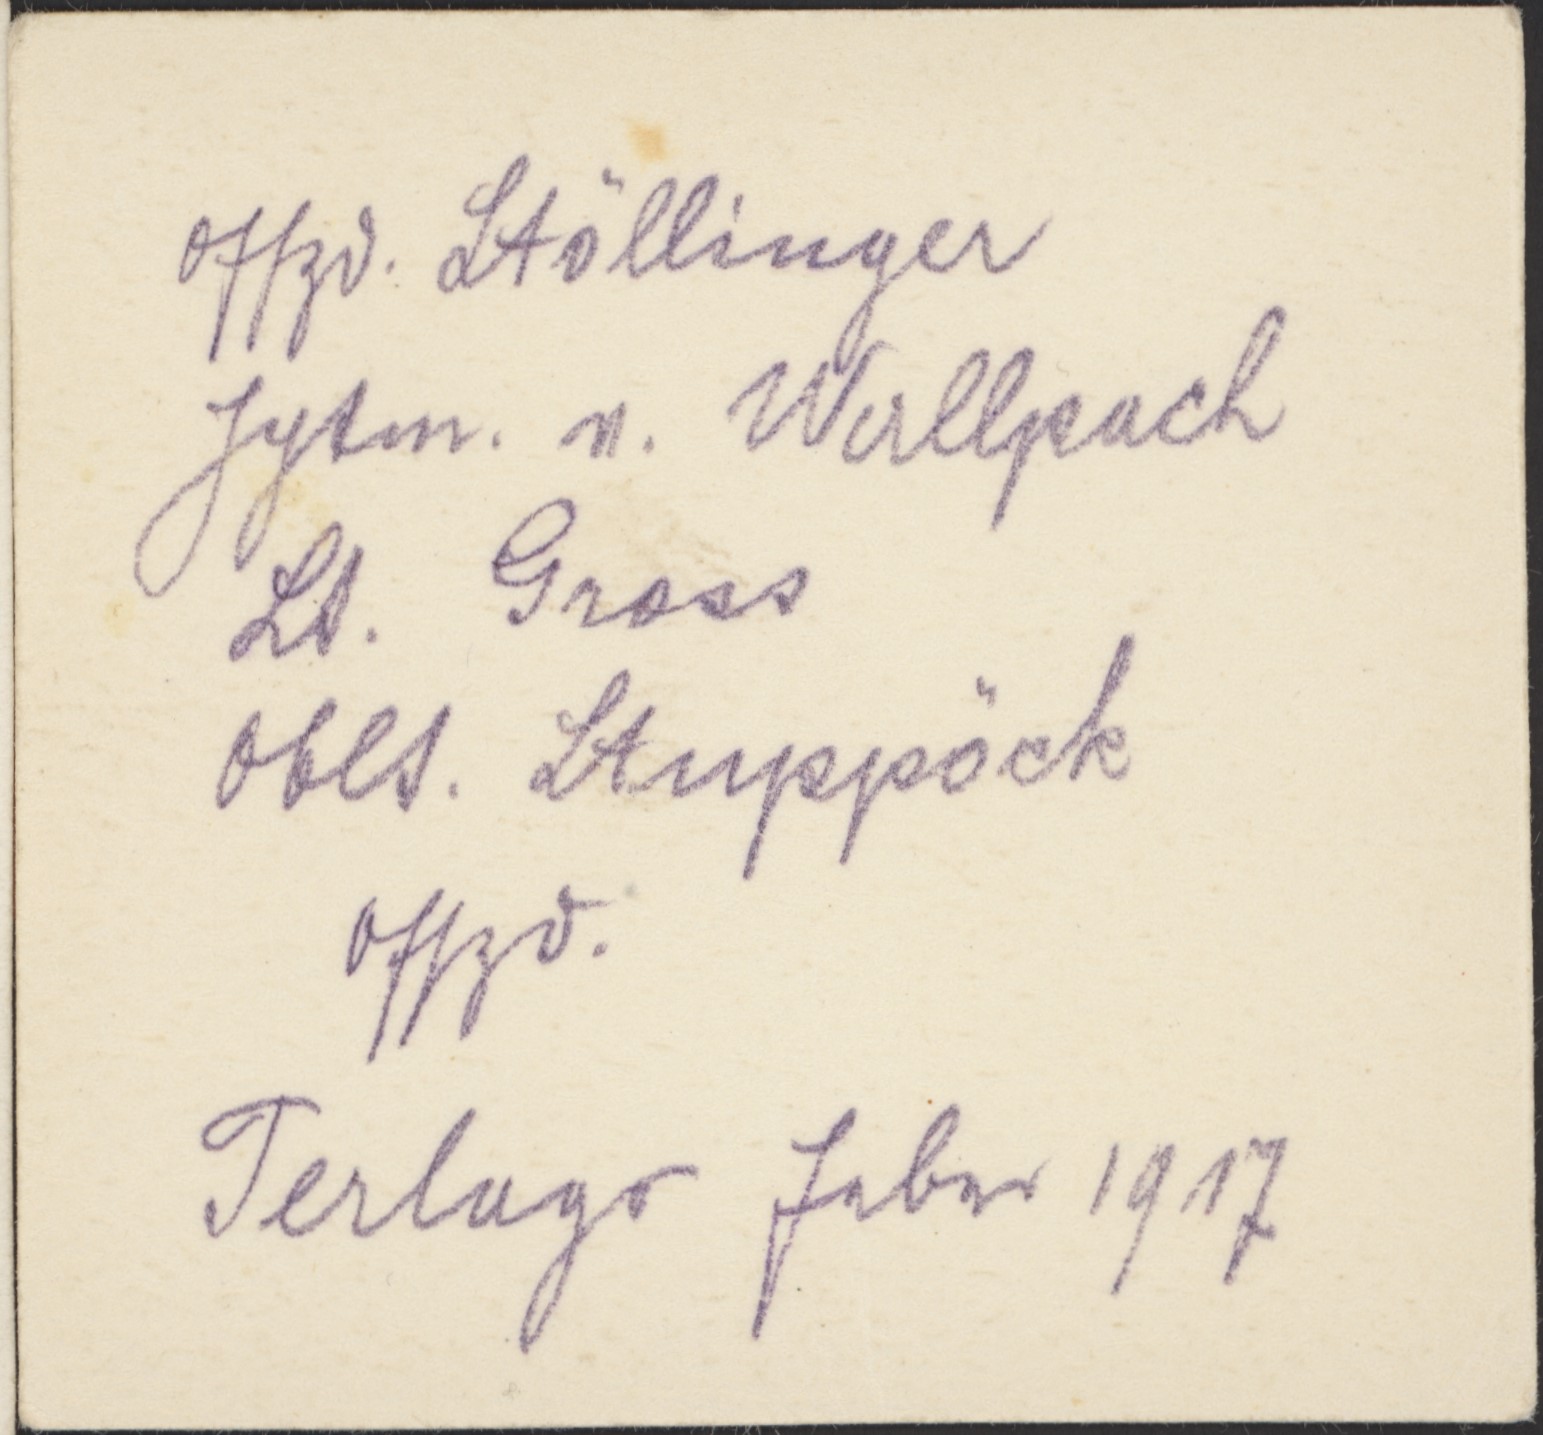 Offzd. Stöllinger
Hptm. v. Wallpach
Lt. Gross
Oblt. Stuppöck
Offzd.
Terlago Feber 1917